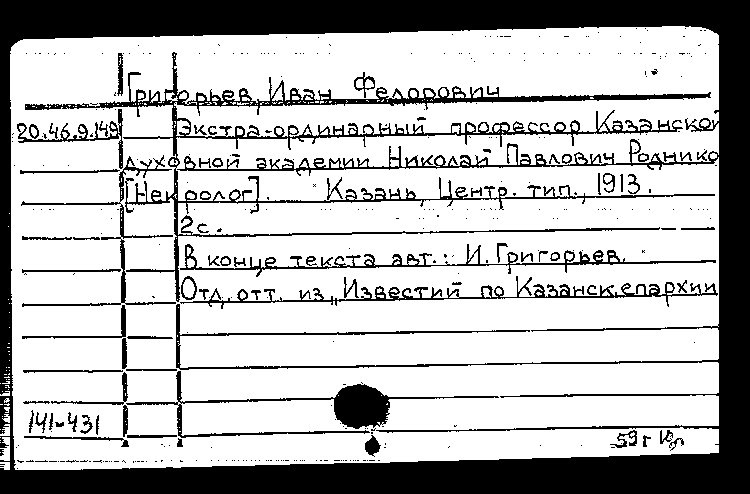 Григорьев, Иван Федорович
20.46.9.149 Экстра-ординарный профессор Казанской
духовной академии Николай Павлович Роднико
[Некролог]. Казань, Центр. тип., 1913.
2с.
В конце текста авт.: И. Григорьев.
Отд. отт. из „Известий по Казанск. епархии
141-431
59г